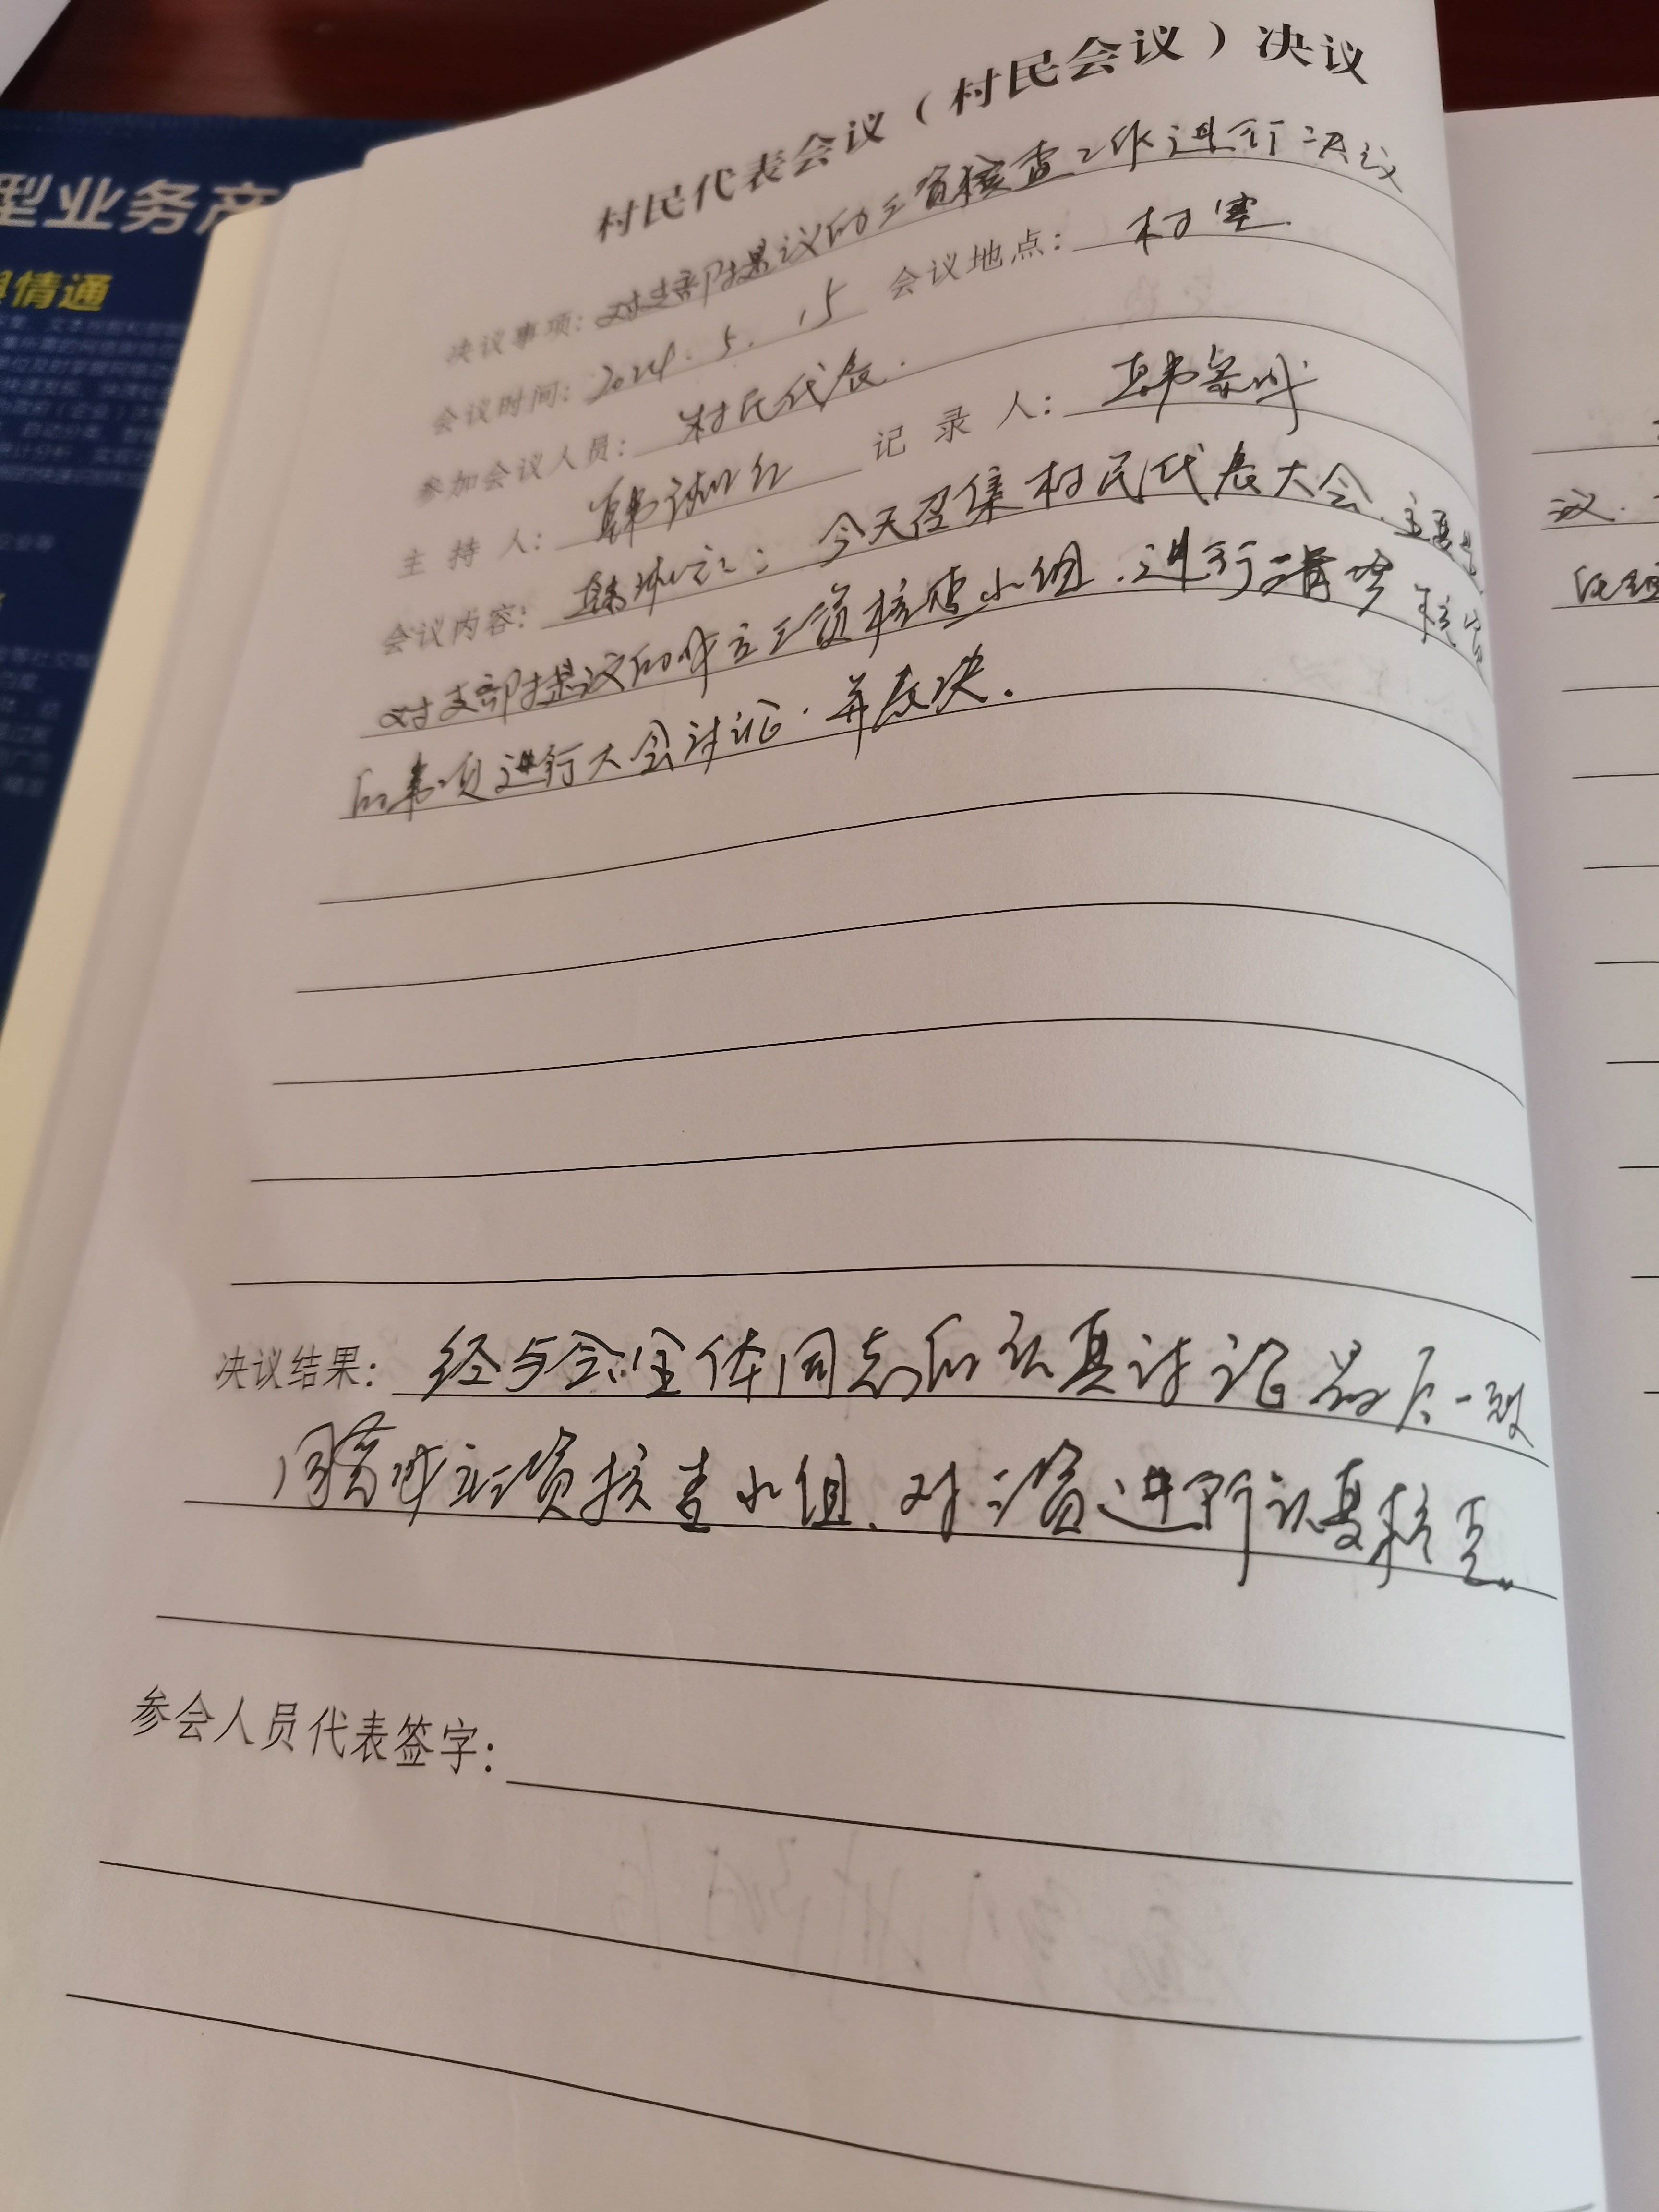 村民代表会议（村民会议）决议
决议事项：对支部提议的三资核查工作进行决议
会议时间：2024.5.15 会议地点：村室
参加会议人员：村民代表.
主持人：韩 记录人：韩
会议内容：韩 今天召集村民代表大会.主要
对支部提议的成立三资核查小组.进行清 核
的事项进行大会讨论.并表决.
决议结果：经与会全体同志的认真讨论最后一致
同意成立三资核查小组.对三资进行认真核查.
参会人员代表签字：
型业务产
情通
议.